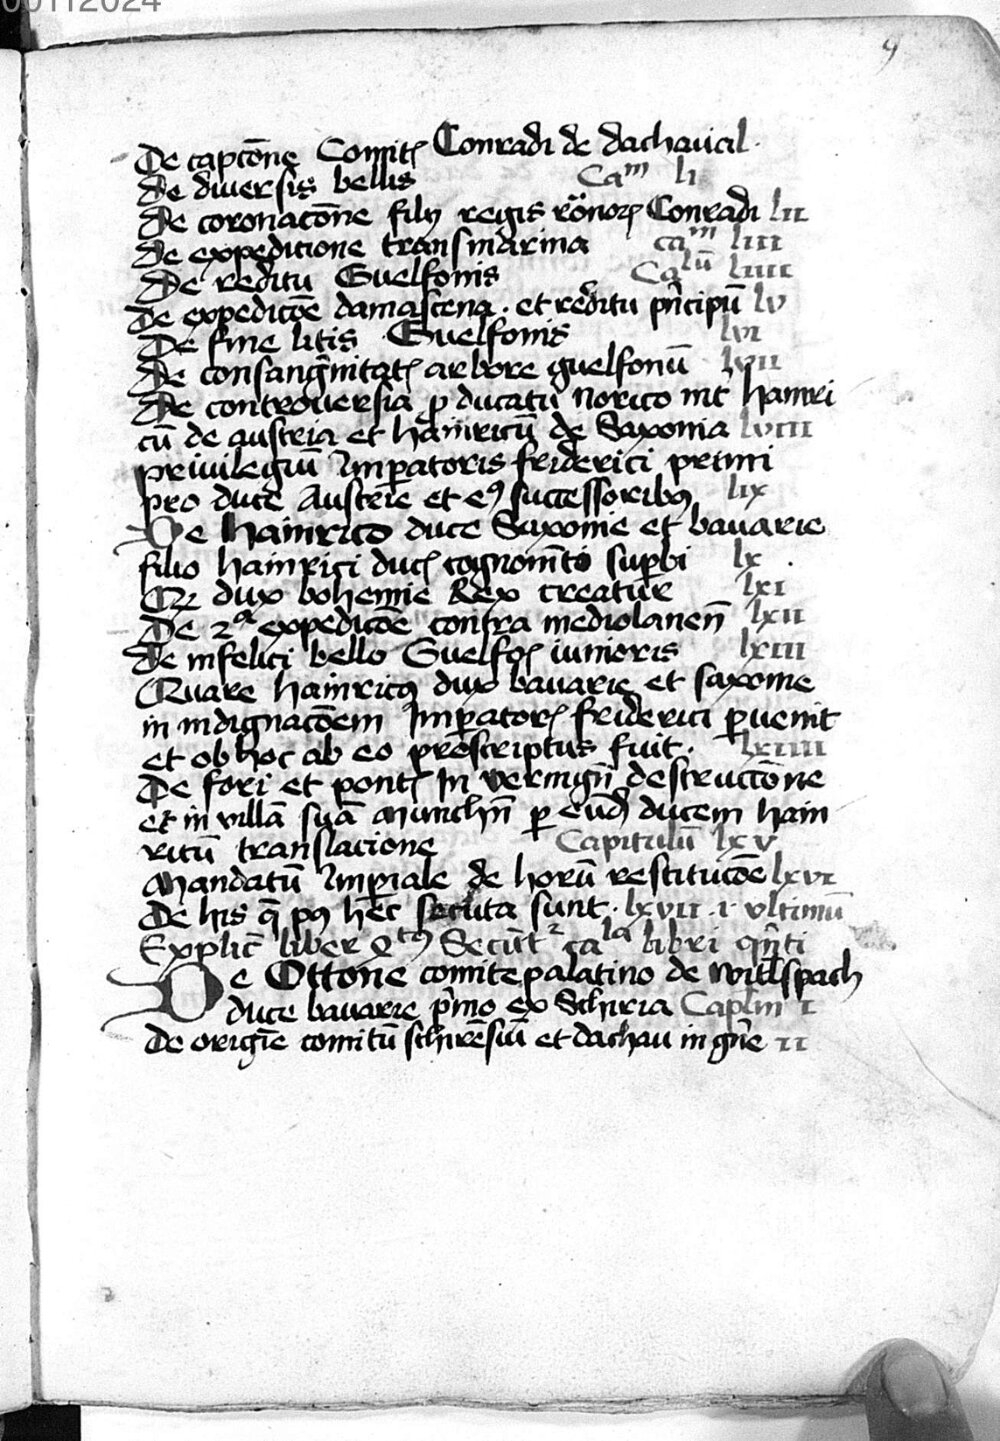 00112024
9
De captōne Comitꝭ Conradi de dachaw ca l.
De diuersis bellis Caᵐ li
De coronacōne filij regis rōnorꝫ Conradi lii
De expedicione transmarina caᵐ liii
De reditu Guelfonis Caᵗˡū liiii
De expedicōe damascena . et reditu pͥncipū lv
De fine litis Guelfonis lvi
De consangͥnitatꝭ arbore guelfonū lvii
De controuersia ꝓ ducatu norico int̄ hainri
cū de austria et hainricū de Saxonia lviii
priuilegiū Imꝑatoris friderici primi
pro duce Austrie et eꝰ successoribꝰ lix
De Hainrico duce Saxonie et bauarie
filio hainrici ducꝭ cognomīto suꝑbi lx .
Qꝛ dux bohemie Rex creatur lxi
De 2ᵃ expedicōe contra mediolanen̄ lxii
De infelici bello Guelfoꝭ iunioris lxiii
Quare hainricꝰ dux bauarie et saxonie
in indignacōem Imꝑatorꝭ friderici ꝑuenit
et ob hoc ab eo prescriptus fuit . lxiiii
De fori et pontꝭ In vermign̄ destructōne
et in villā suā Munchn̄ ꝑ eūdꝭ ducem hain
ricū translacione Capitulū lxv
Mandatū Imꝑiale de horū restitucōe lxvi
De his q̄ pꝰ hec secuta sunt . lxvii . i vltimū
Explic̄ liber Qᵗꝰ Secūtʳ caˡᵃ libri qͥnti
De Ottone comite palatino de wittlspach
duce bauarie pͥmo ex Schiria Caplm i
De origīe comitū schirēsiū et dachau in gn̄e ii